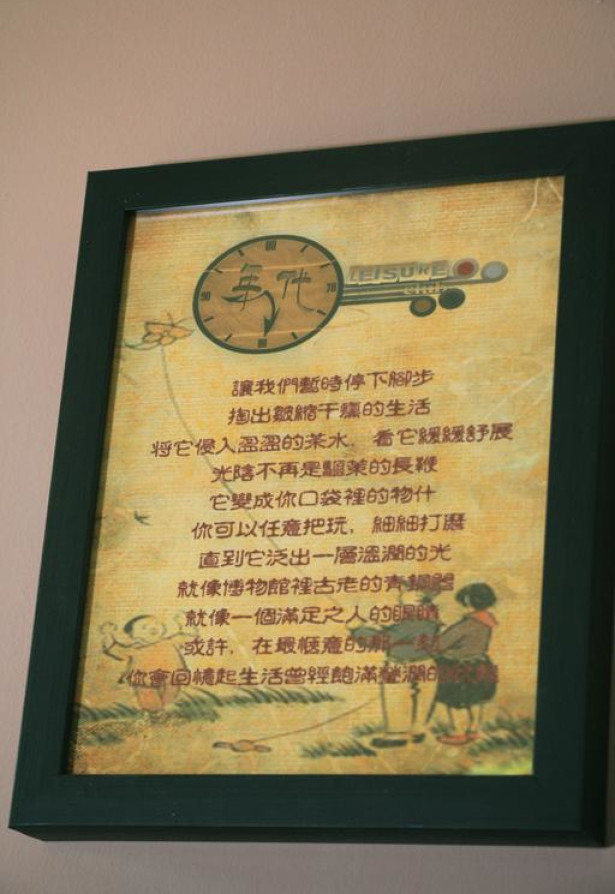 年代
LEISURE
club
讓我們暫時停下腳步
掏出皺縮干癟的生活
將它侵入盈盈的茶水，看它緩緩舒展
光陰不再是驅策的長鞭
它變成你口袋裡的物什
你可以任意把玩，細細打磨
直到它泛出一層溫潤的光
就像博物館裡古老的青銅器
就像一個滿足之人的眼睛
或許，在最愜意的那一刻
你會回憶起生活曾經飽滿瑩潤的